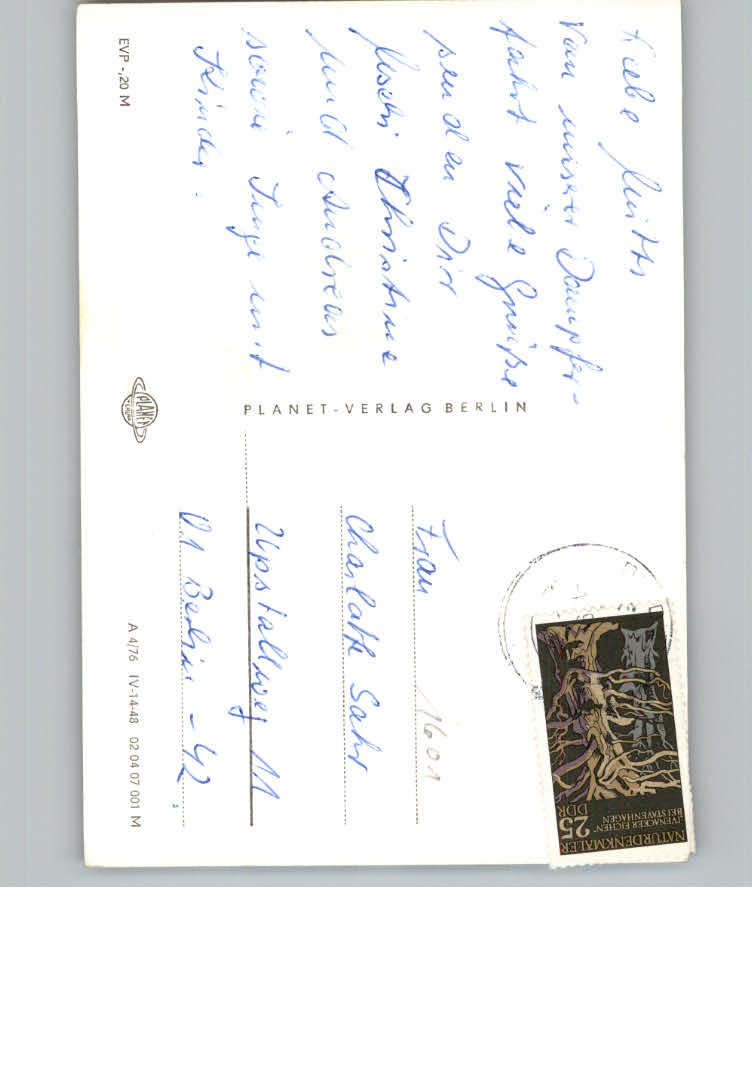 Liebe Mutti
von unserer Dampfer-
fahrt viele Grüße
senden Dir
Christine
und Andreas
sowie Inge mit
Kinder.
EVP -,20 M
PLANET
VERLAG
PLANET-VERLAG BERLIN
Frau
1601
Charlotte Sahr
Upstallweg 11
0.1 Berlin - 42
A 4/76 IV-14-48 02 04 07 001 M
NATURDENKMALER
IVENACKER EICHEN
BEI STAVENHAGEN
25
DDR